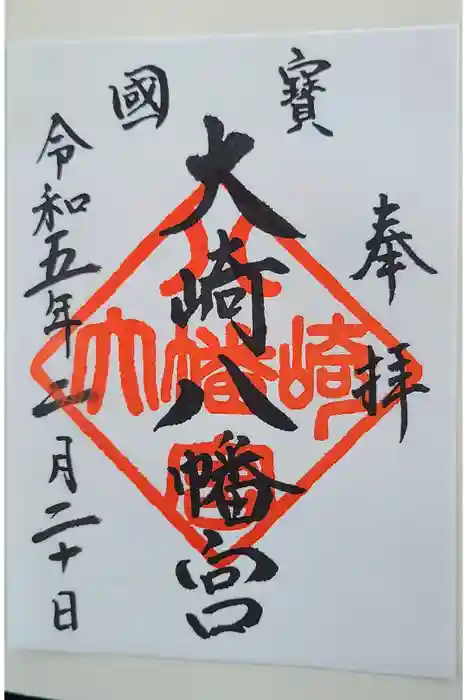 寶國
奉拝
大崎八幡宮
令和五年二月二十日
八
大幡崎
宮